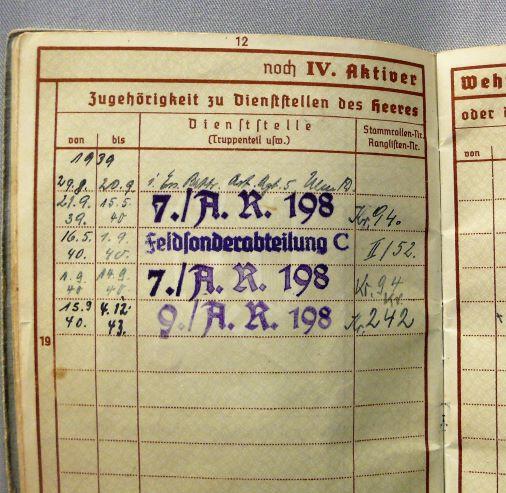 12
noch IV. Aktiver
Zugehörigkeit zu Dienststellen des Heeres
von bis Dienststelle (Truppenteil usw.) Stammrollen-Nr. Ranglisten-Nr.
1939
29.8. 20.9. Ers. Battr. Art. Rgt. 5
21.9. 39. 15.5. 40 7./A. R. 198 Nr. 94.
16.5. 40. 1.9. 40. Feldsonderabteilung C II/52.
1.9. 40 14.9. 40 7./A. R. 198 Nr. 94
15.9 40. 4.12. 43. 9./A. R. 198 Nr. 242
19
Weh
oder
von